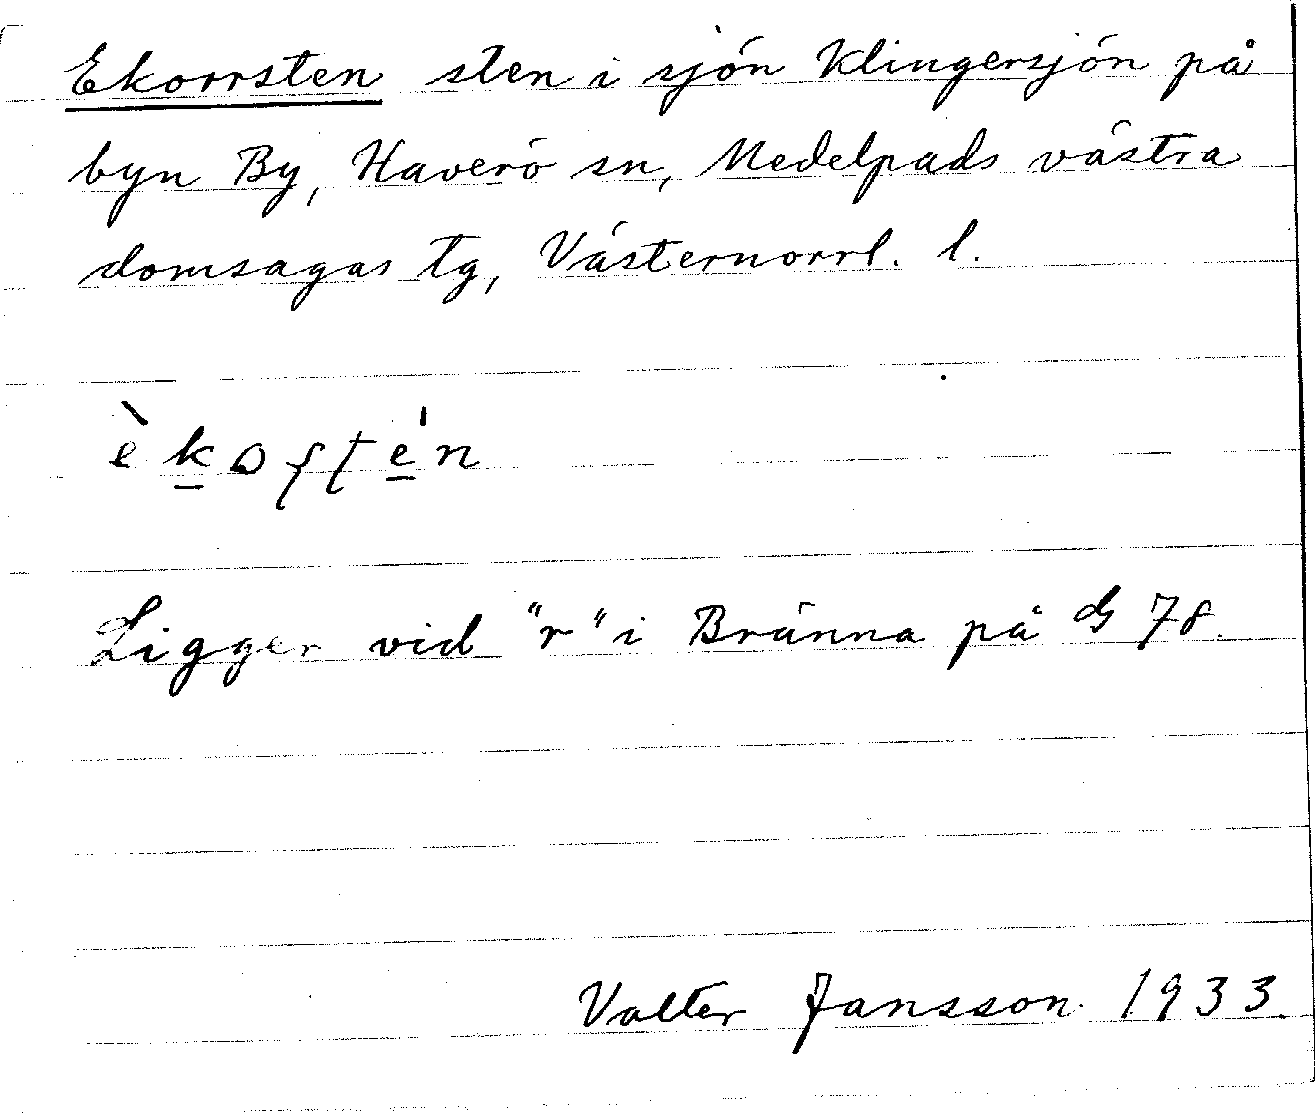 Ekorrsten sten i sjön Klingersjön på
byn By, Haverö sn, Medelpads västra
domsagas tg, Västernorrl. l.
èkoʂʈén
Ligger vid "r" i Bränna på G 78.
Valter Jansson 1933.